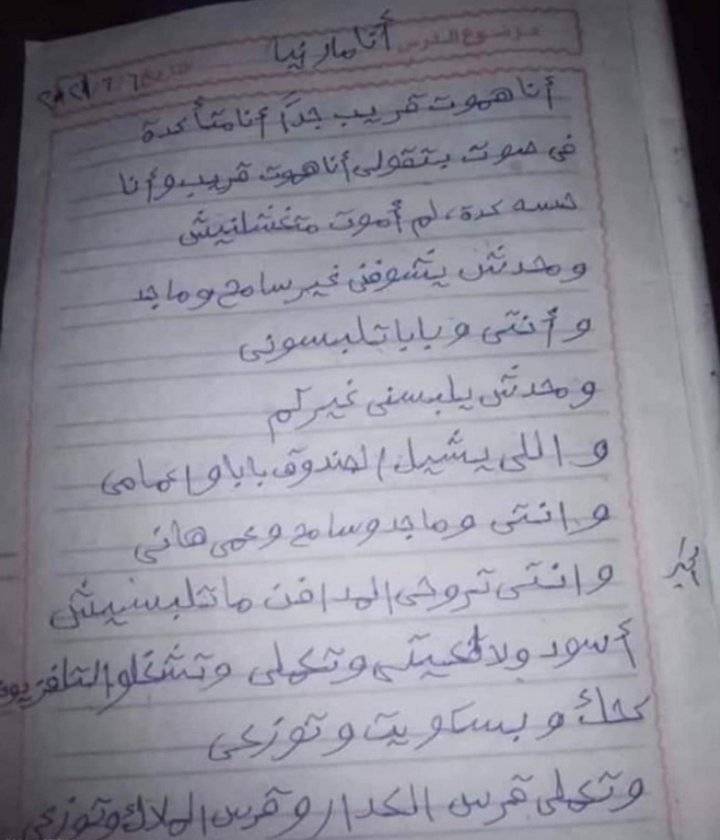 موضوع الدرس
أنا مارنيا
تاريخ 7/6/2021
أنا هموت قريب جداً أنا متأكدة
فى صوت بتقولى أنا هموت قريب وأنا
حسه كدة، لم أموت متغسلنيش
ومحدش يشوفنى غير سامح وماجد
وأنتى وبابا تلبسونى
ومحدش يلبسنى غيركم
واللى يشيل الصندوق بابا واعمامى
وانتى وماجد وسامح وعمى هانى
وانتى تروحى المدافن ماتلبسيش
أسود ولا تعيتى وتعملى وتشغلو التلفزيون
كحك وبسكويت وتوزعى
وتعملى قرس الملاك وتوزعى